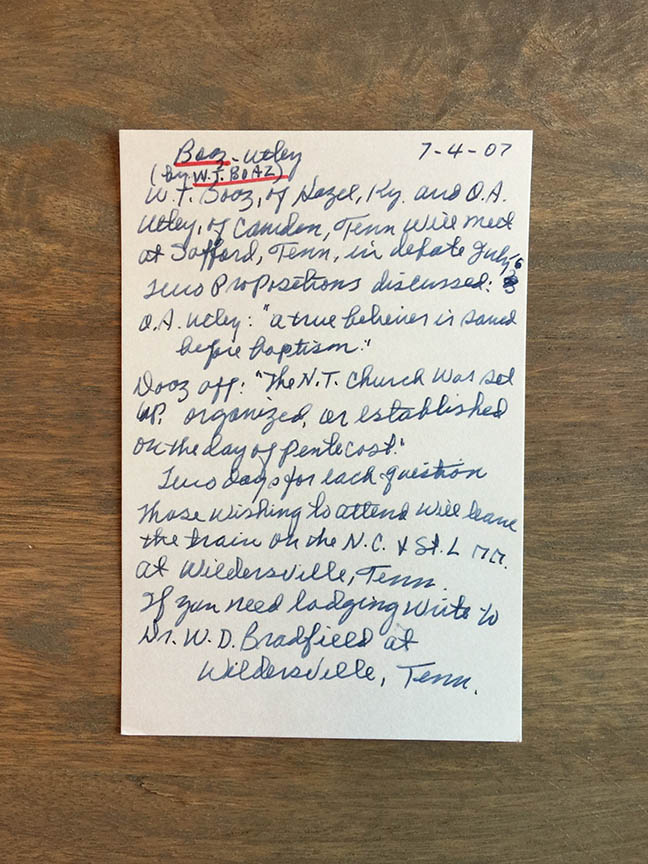 Booz-Utley 7-4-07
(by W.J. BOAZ)
W.T. Booz, of Hazel, Ky. and O.A.
Utley, of Camden, Tenn will meet
at Safford, Tenn, in debate July 16
Two Propositions discussed:
O.A. Utley: "a true believer is saved
before baptism."
Booz aff: "The N.T. Church was set
up, organized, or established
on the day of Pentecost."
Two days for each question
Those wishing to attend will leave
the train on the N.C. & St. L rr.
at Wildersville, Tenn
If you need lodging write to
Dr. W.D. Bradfield at
Wildersville, Tenn.